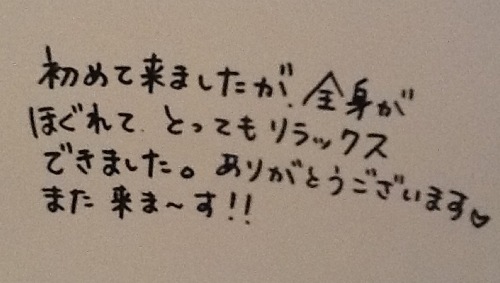 初めて来ましたが、全身が
ほぐれて、とってもリラックス
できました。ありがとうございます♡
また来ま〜す!!